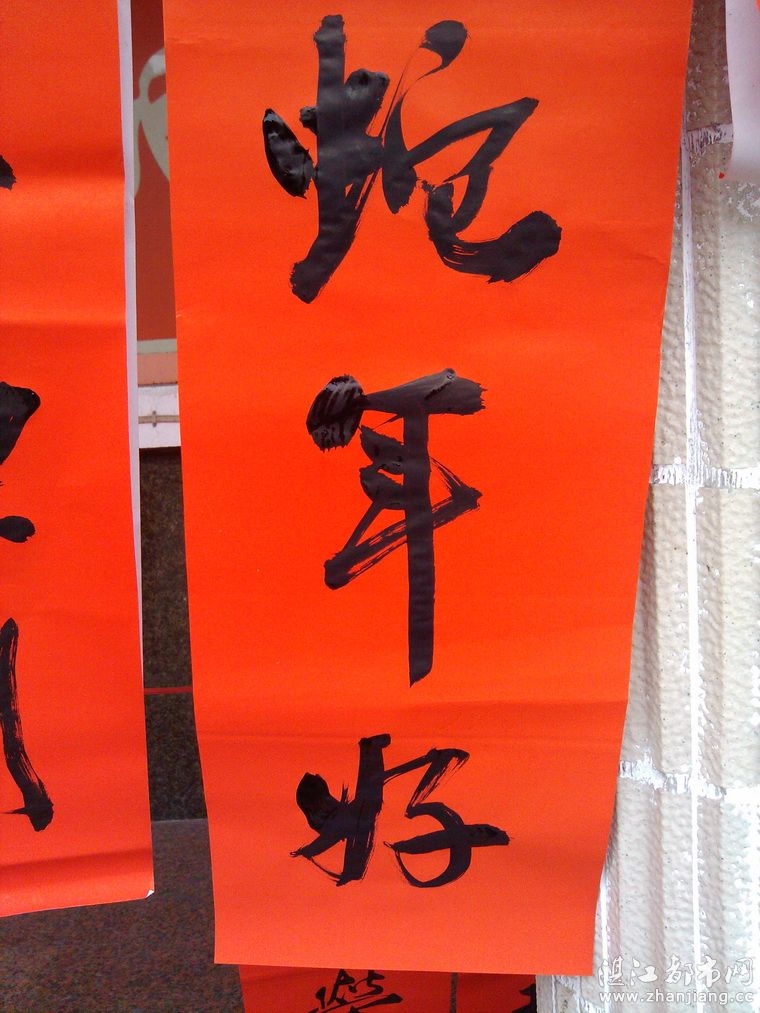 蛇年好
湛江都市网
www.zhanjiang.cc